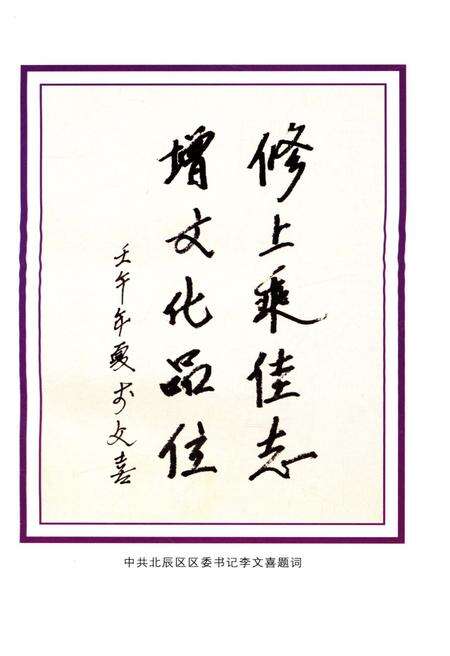 修上乘佳志
增文化品位
壬午年夏李文喜
中共北辰区区委书记李文喜题词